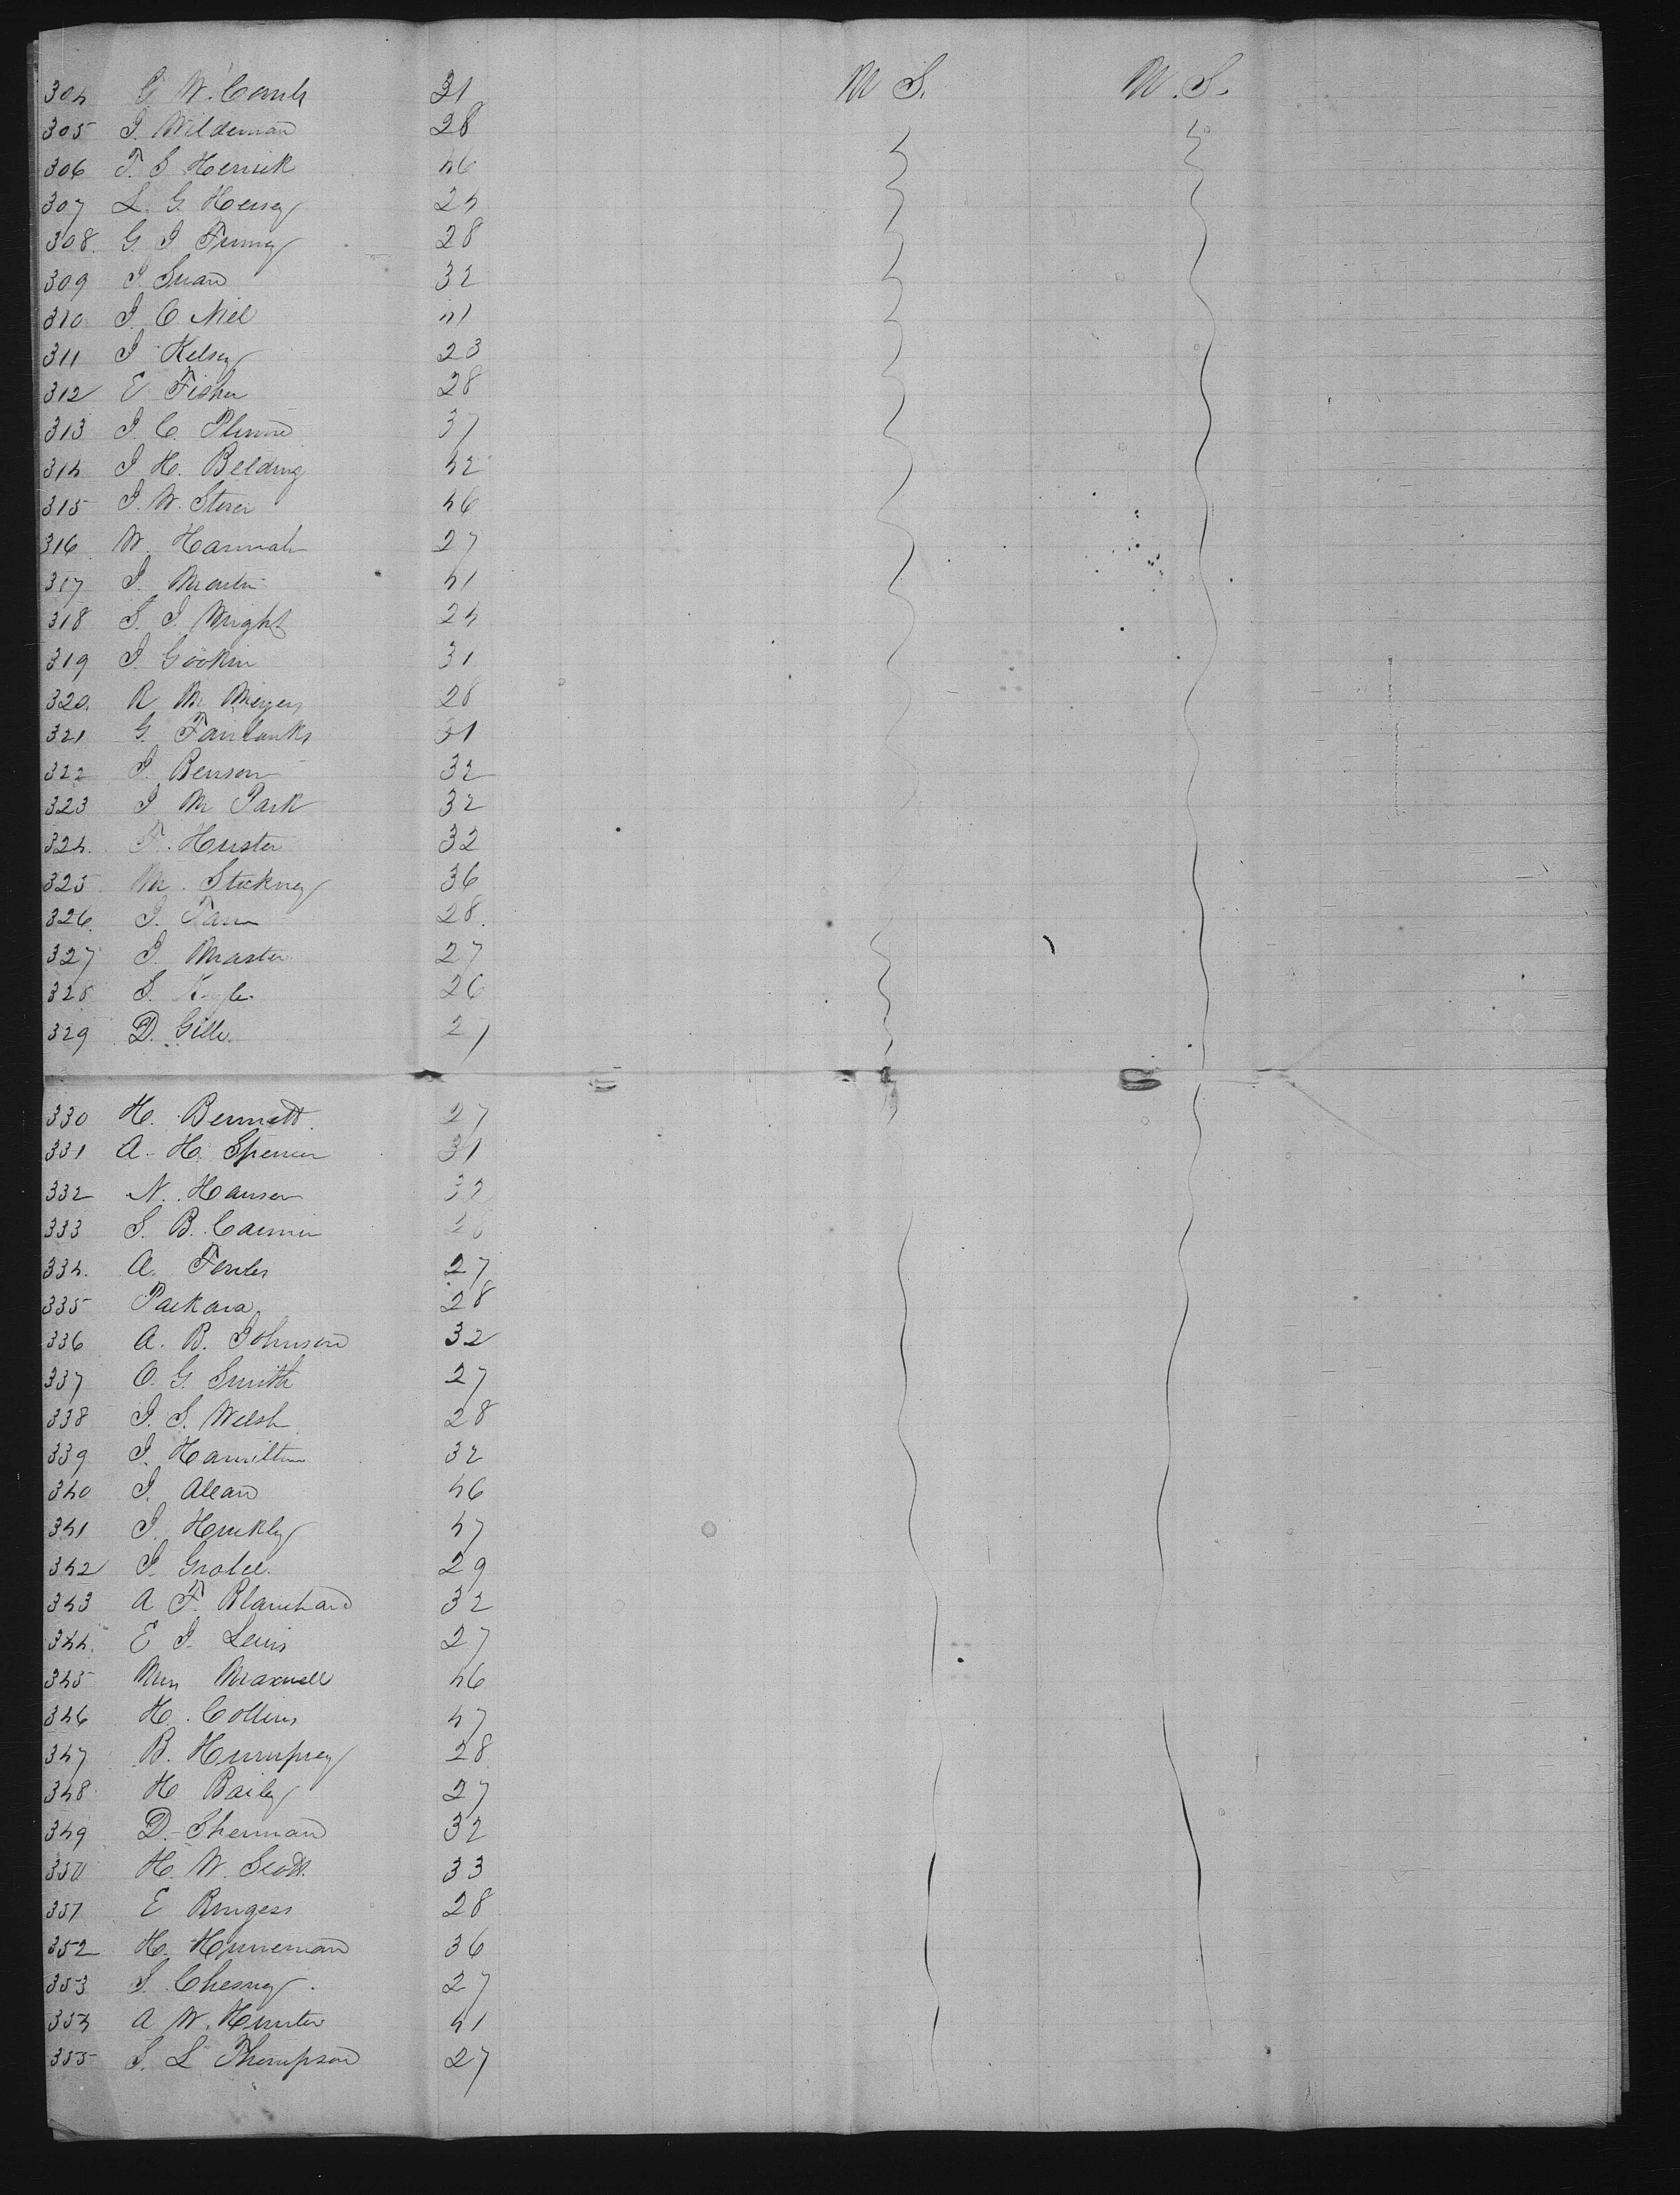 304 G W. Comb 31 M S. M. S.
305 J. Wildeman 28
306 T. S Herrick 46
307 L. G. Hersey 24
308. G. J Finney 28
309 J. Swan 32
310 J. O Niel 41
311 J Kelsey 23
312 E Fisher 28
313 J. C. 37
314 J H. Belding 42
315 J. W. Storer 46
316 W. Hannah 27
317 J. Martin 41
318 S. J. Wright 24
319 J. Gookin 31
320. R M Meyers 28
321 G. Fairbanks 31
322 J. Benson 32
323 J M Park 32
324. F. Huster 32
325 M. Stickney 36
326. J. 28.
327 J. Master 27
328 S. 26
329 D. Gille 27
330 H. Bennett. 27
331 A. H. Spencer 31
332 N. Hansen 32
333 S. B. 28
334. A. Fowler 27
335 28
336 A. B. Johnson 32
337 O. G. Smith 27
338 J. S. Welsh 28
339 J. Hamilton 32
340 J. 46
341 J. Hinkley 47
342 J. 29
343 A F. Blanchard 32
344. E J. Lewis 27
345 Maxwell 46
346 H. Collins 47
347 B. Humphrey 28
348 H Bailey 27
349 D. Sherman 32
350 H. W. Scott. 33
351 E Burgess 28
352 H. Hunneman 36
353 S. Chesney. 27
354 A W. Hunter 41
355 S. L Thompson 27